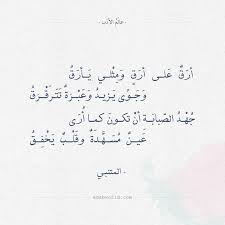 عالم الأدب
أَرَقٌ عَلى أَرَقٍ وَمِثلي يَأرَقُ
وَجَوىً يَزيدُ وَعَبرَةٌ تَتَرَقرَقُ
جُهدُ الصَبابَةِ أَن تَكونَ كَما أُرى
عَينٌ مُسَهَّدَةٌ وَقَلبٌ يَخفِقُ
- المتنبي